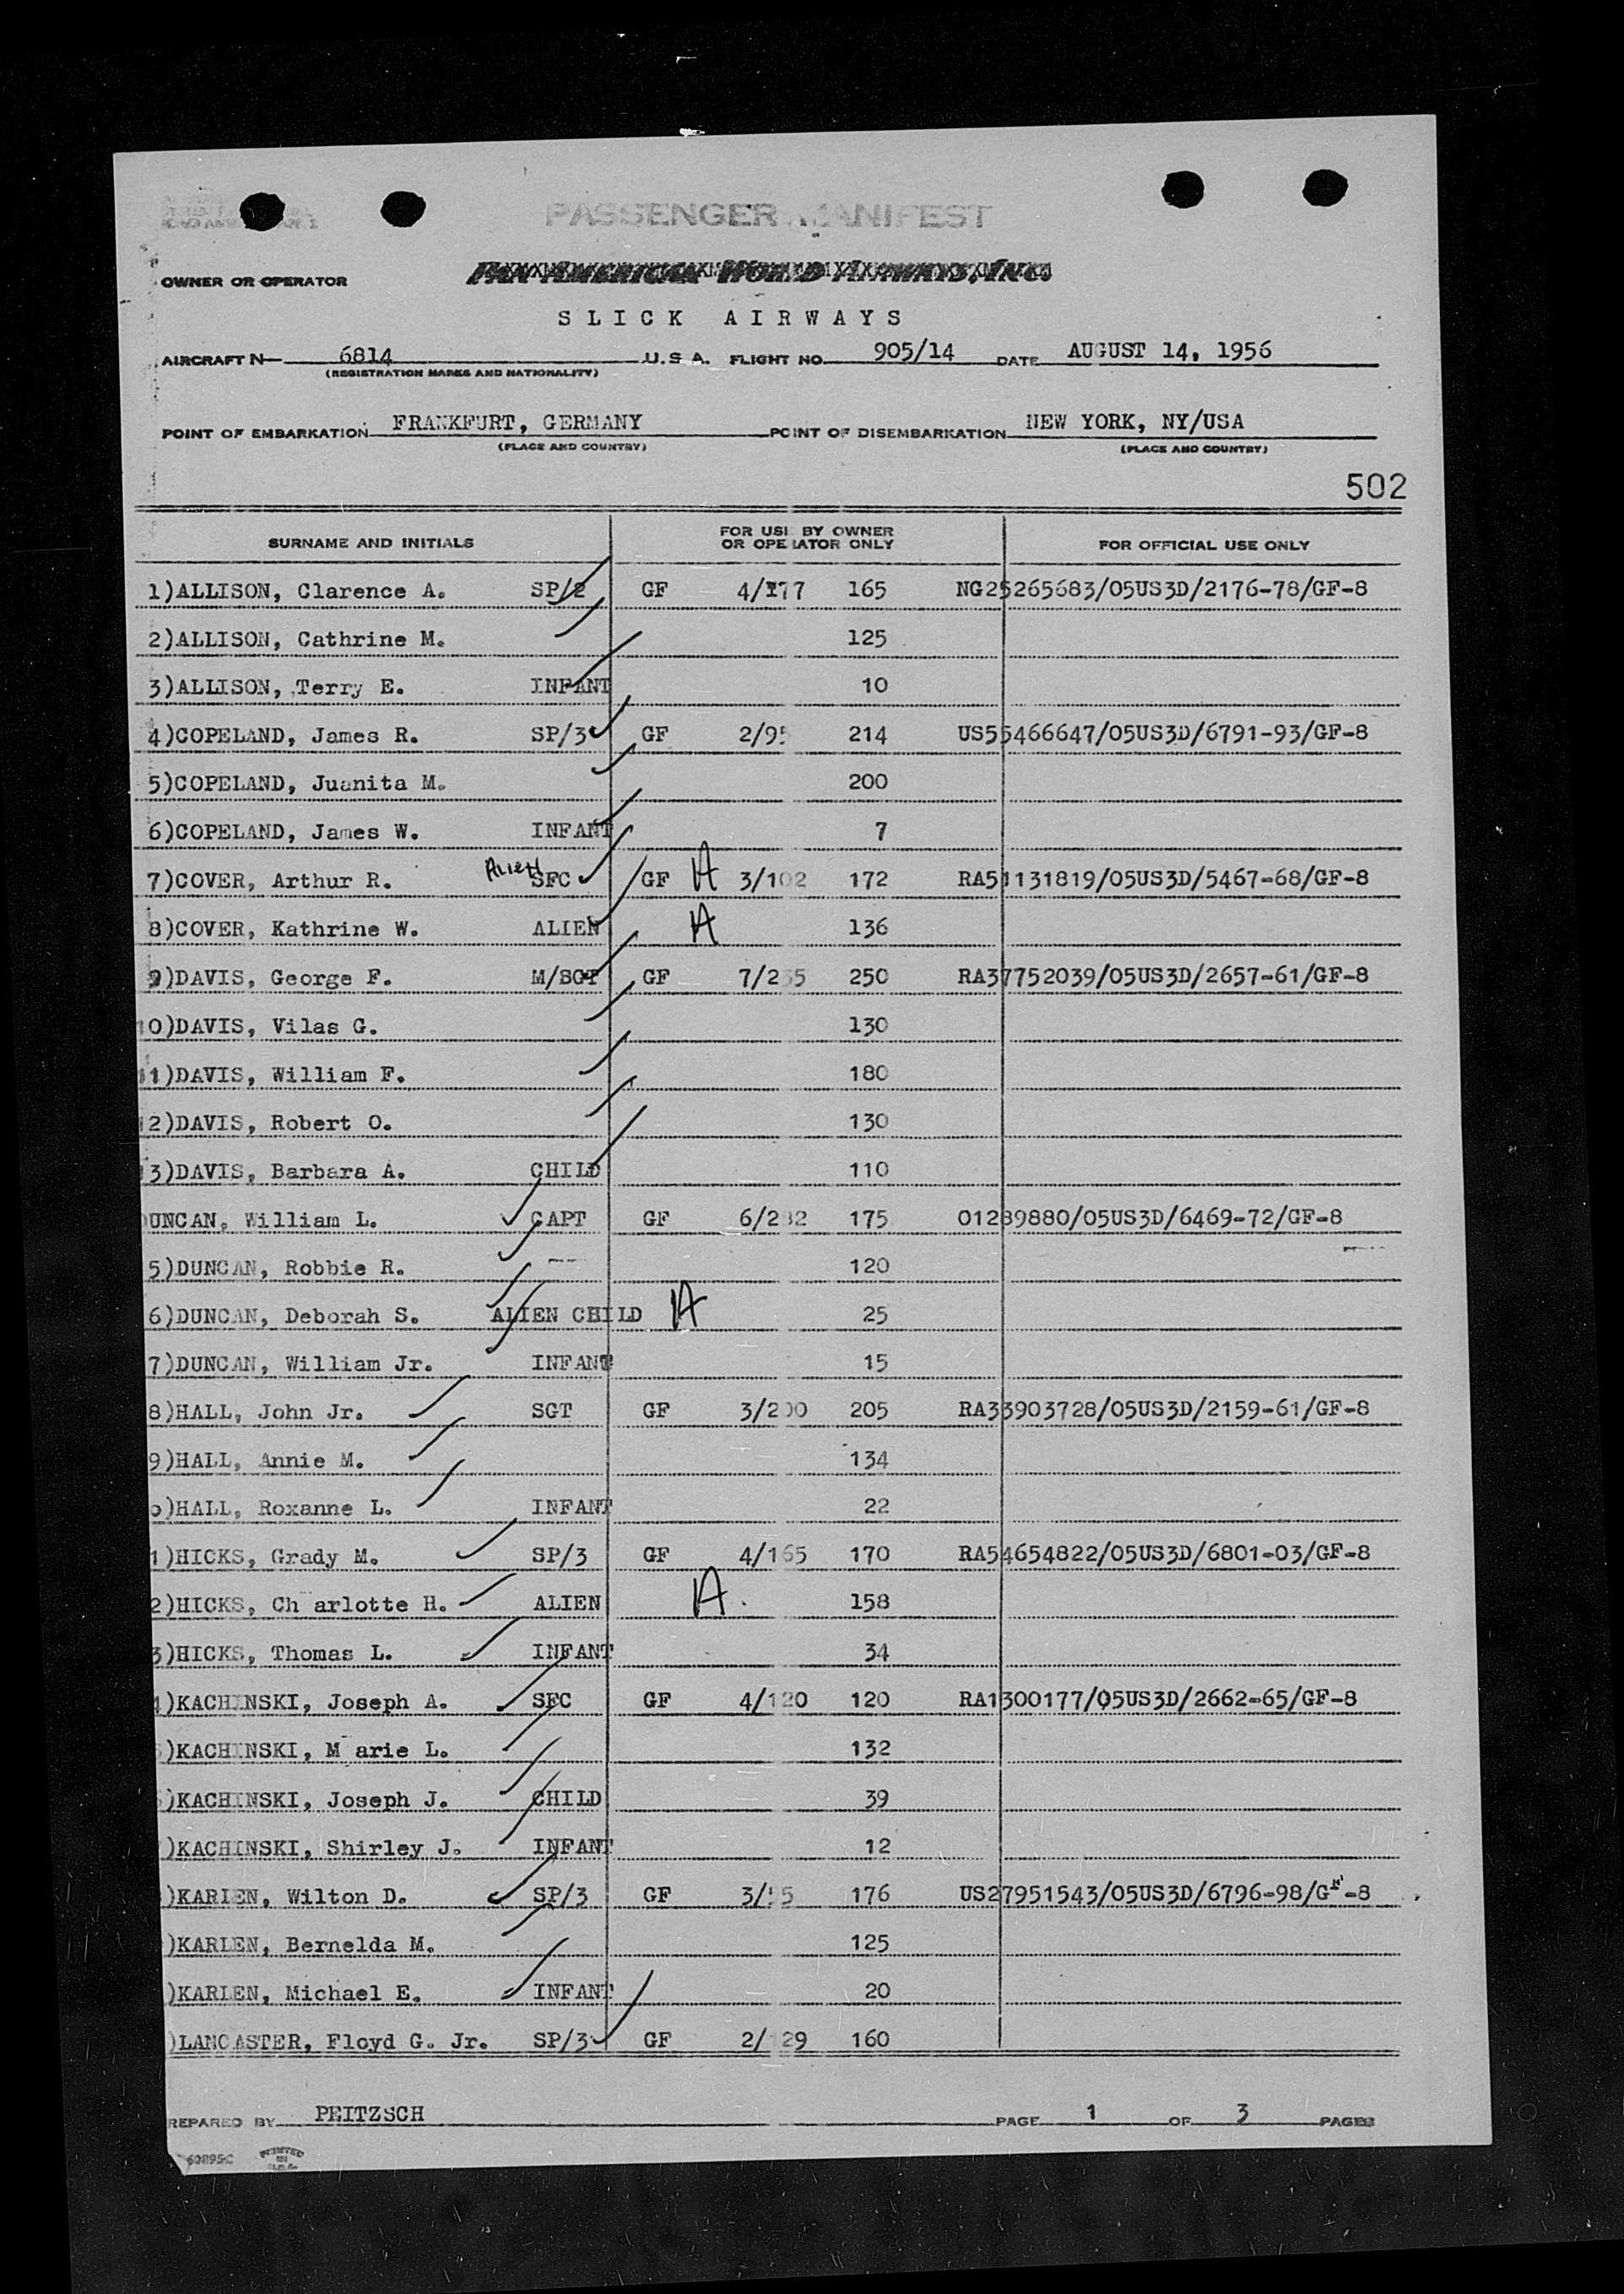 PASSENGER MANIFEST
OWNER OR OPERATOR PAN AMERICAN WORLD AIRWAYS, INC.
SLICK AIRWAYS
AIRCRAFT N 6814 U.S.A. FLIGHT NO. 905/14 DATE AUGUST 14, 1956
(REGISTRATION MARKS AND NATIONALITY)
POINT OF EMBARKATION FRANKFURT, GERMANY POINT OF DISEMBARKATION NEW YORK, NY/USA
(PLACE AND COUNTRY) (PLACE AND COUNTRY)
502
SURNAME AND INITIALS FOR USE BY OWNER OR OPERATOR ONLY FOR OFFICIAL USE ONLY
1)ALLISON, Clarence A. SP/2 GF 4/177 165 NG25265683/05US3D/2176-78/GF-8
2)ALLISON, Cathrine M. 125
3)ALLISON, Terry E. INFANT 10
4)COPELAND, James R. SP/3 GF 2/95 214 US55466647/05US3D/6791-93/GF-8
5)COPELAND, Juanita M. 200
6)COPELAND, James W. INFANT 7
7)COVER, Arthur R. Alien SFC GF A 3/102 172 RA51131819/05US3D/5467-68/GF-8
8)COVER, Kathrine W. ALIEN A 136
9)DAVIS, George F. M/SGT GF 7/2 5 250 RA37752039/05US3D/2657-61/GF-8
0)DAVIS, Vilas G. 130
11)DAVIS, William F. 180
2)DAVIS, Robert O. 130
3)DAVIS, Barbara A. CHILD 110
DUNCAN, William L. CAPT GF 6/2 2 175 01289880/05US3D/6469-72/GF-8
5)DUNCAN, Robbie R. 120
6)DUNCAN, Deborah S. ALIEN CHILD A 25
7)DUNCAN, William Jr. INFANT 15
8)HALL, John Jr. SGT GF 3/200 205 RA33903728/05US3D/2159-61/GF-8
9)HALL, Annie M. 134
0)HALL, Roxanne L. INFANT 22
1)HICKS, Grady M. SP/3 GF 4/165 170 RA54654822/05US3D/6801-03/GF-8
2)HICKS, Ch arlotte H. ALIEN A. 158
3)HICKS, Thomas L. INFANT 34
)KACHINSKI, Joseph A. SFC GF 4/120 120 RA1300177/05US3D/2662-65/GF-8
)KACHINSKI, M arie L. 132
)KACHINSKI, Joseph J. CHILD 39
)KACHINSKI, Shirley J. INFANT 12
)KARLEN, Wilton D. SP/3 GF 3/ 5 176 US27951543/05US3D/6796-98/GF-8
)KARLEN, Bernelda M. 125
)KARLEN, Michael E. INFANT 20
)LANCASTER, Floyd G. Jr. SP/3 GF 2/ 29 160
REPARED BY PEITZSCH PAGE 1 OF 3 PAGES
60895C PRINTED IN U.S.A.